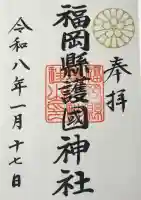 奉拝
福岡縣護國神社
令和八年一月十七日